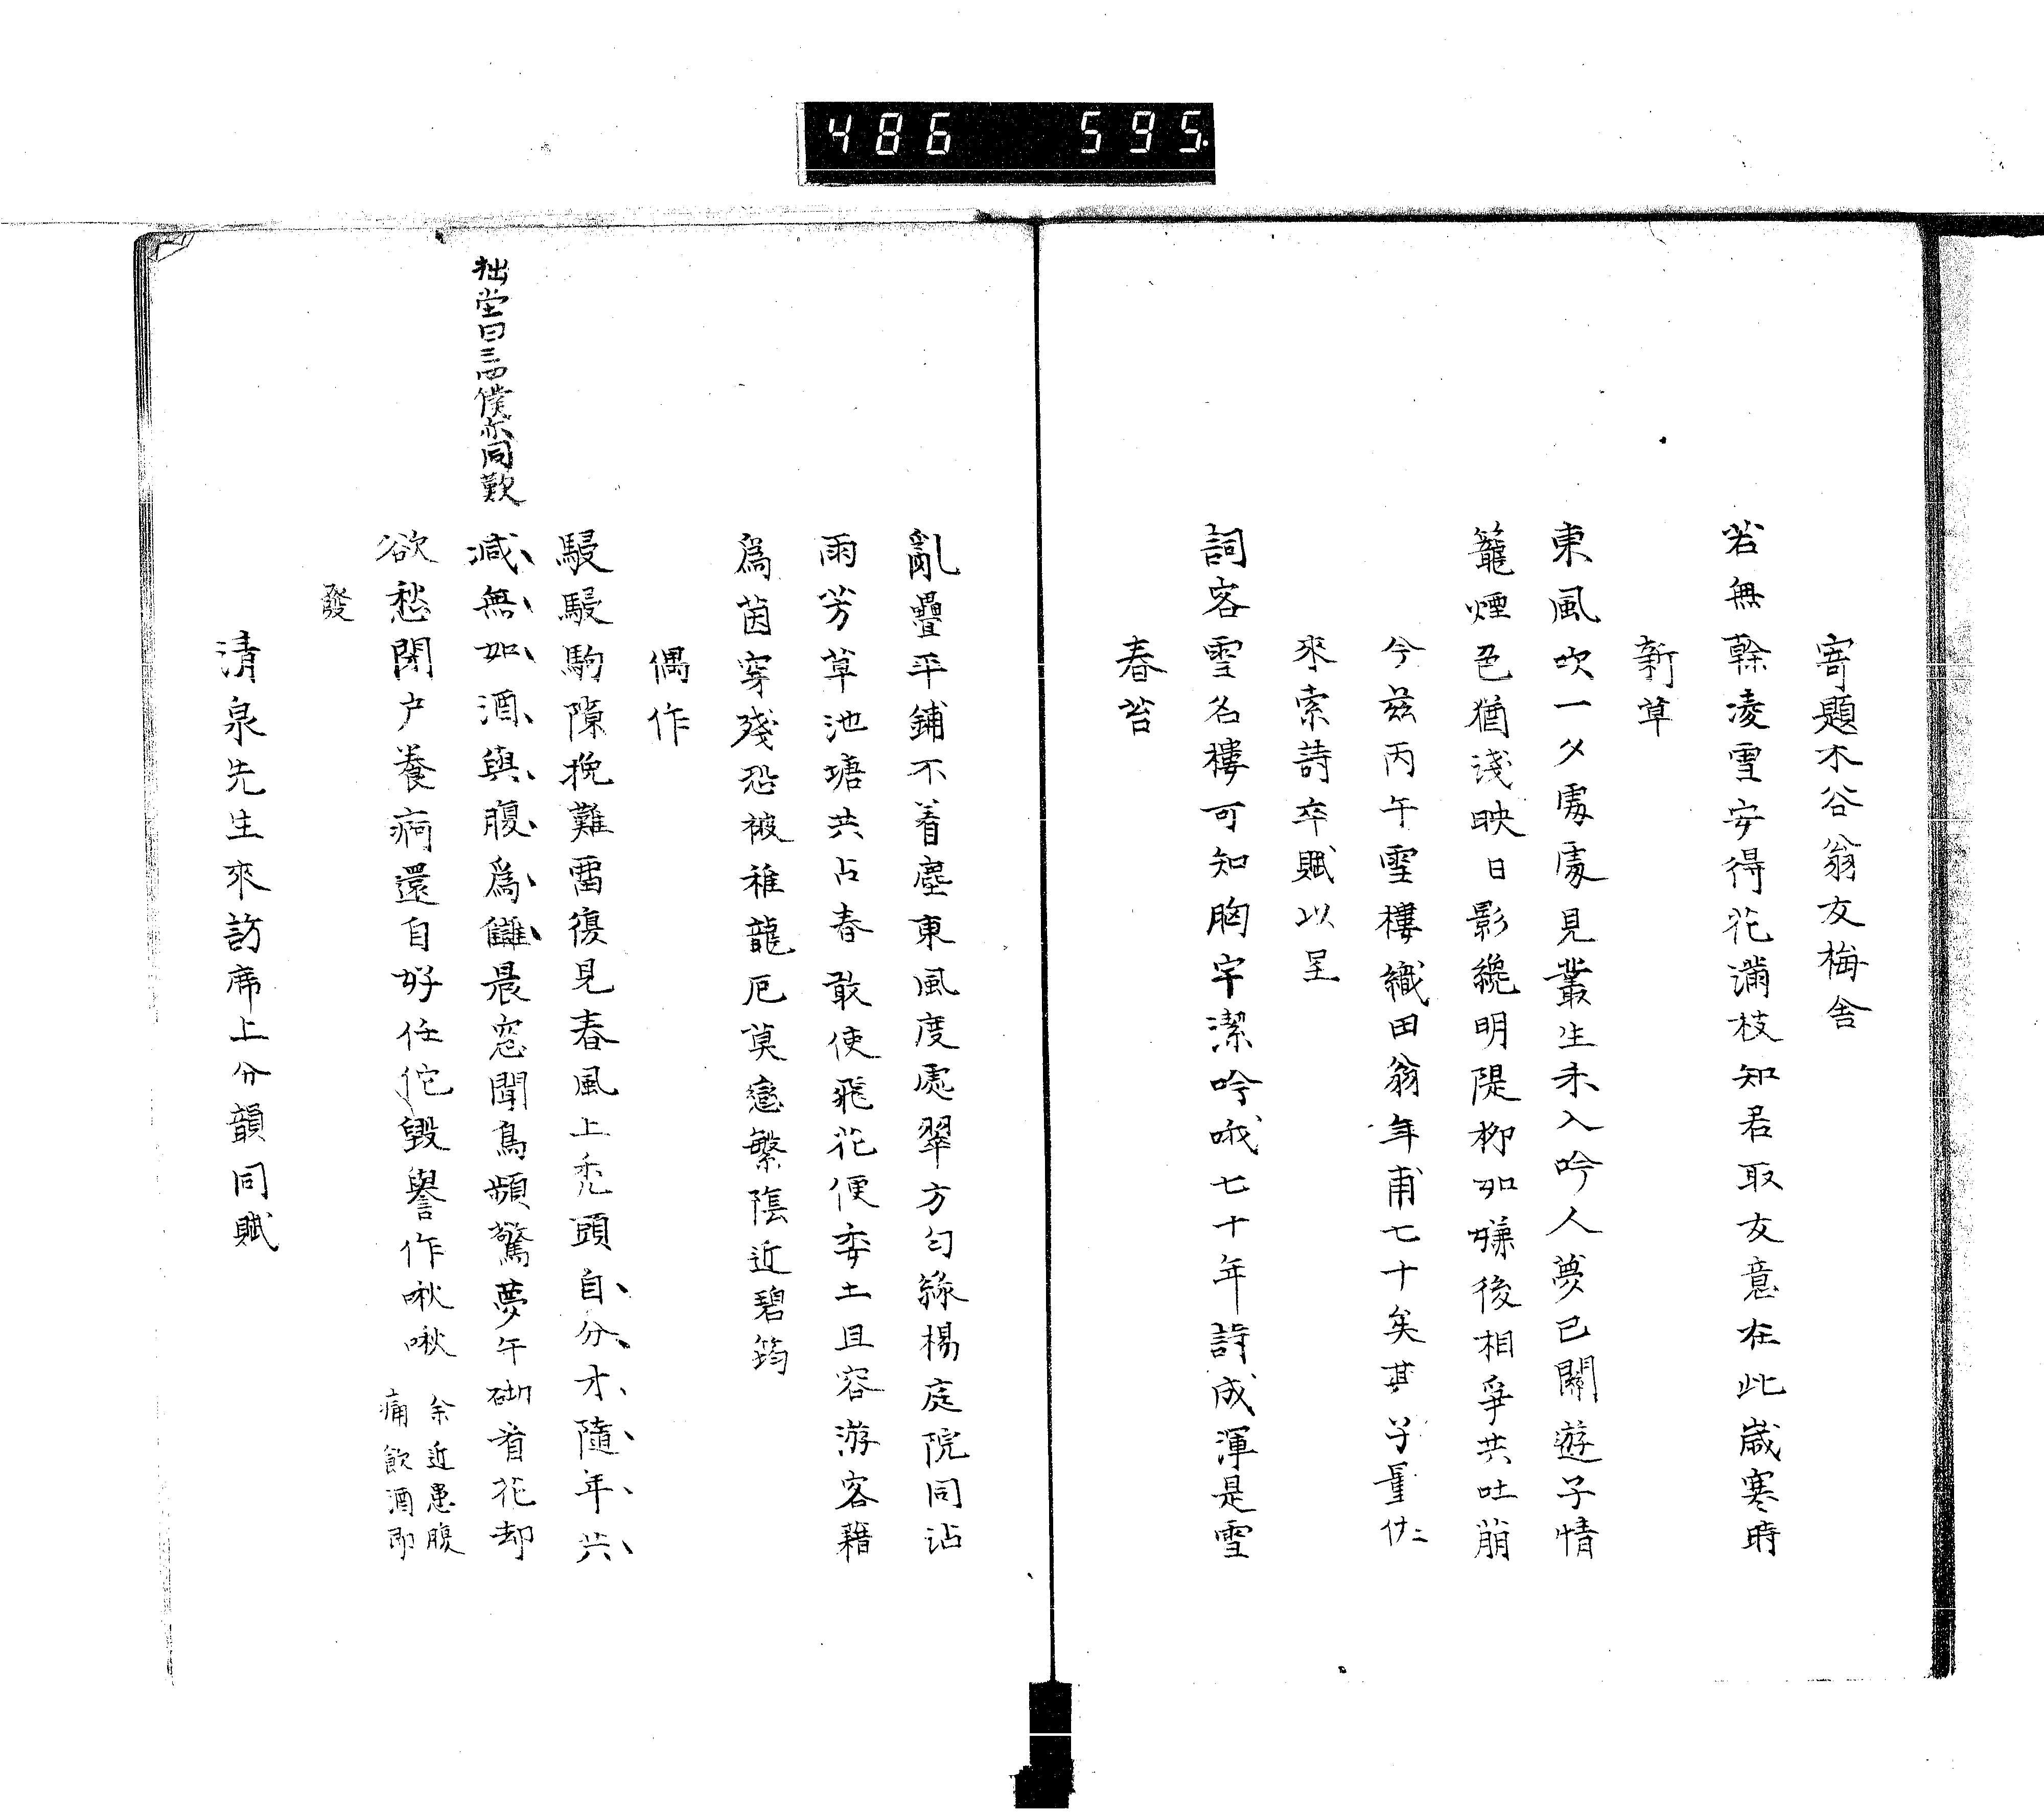 486 595
寄題木谷翁友梅舎
若無幹凌雪安得花滿枝知君取友意在此歳寒時
新草
東風吹一夕處處見叢生未入吟人夢已關遊子情
籠煙色猶淺映日影纔明隄柳如嫌後相爭共吐萠
今茲丙午雪樓織田翁年甫七十矣其子量佐
來索詩卒賦以呈
詞客雪名樓可知胸宇潔吟哦七十年詩成渾是雪
春苔
亂疊平鋪不着塵東風度處翠方匀綠楊庭院同沾
雨芳草池塘共占春敢使飛花便委土且容游客藉
爲茵穿殘恐被稚龍厄莫戀繁陰近碧筠
偶作
駸駸駒隙挽難畱復見春風上禿頭自分才隨年共
減無如酒與腹爲讎晨窓聞鳥頻驚夢午砌看花却
欲愁閉户養痾還自好任佗毀譽作啾啾
余近患腹
痛飮酒即
發
清泉先生來訪席上分韻同賦
拙堂曰三四僕亦同歎